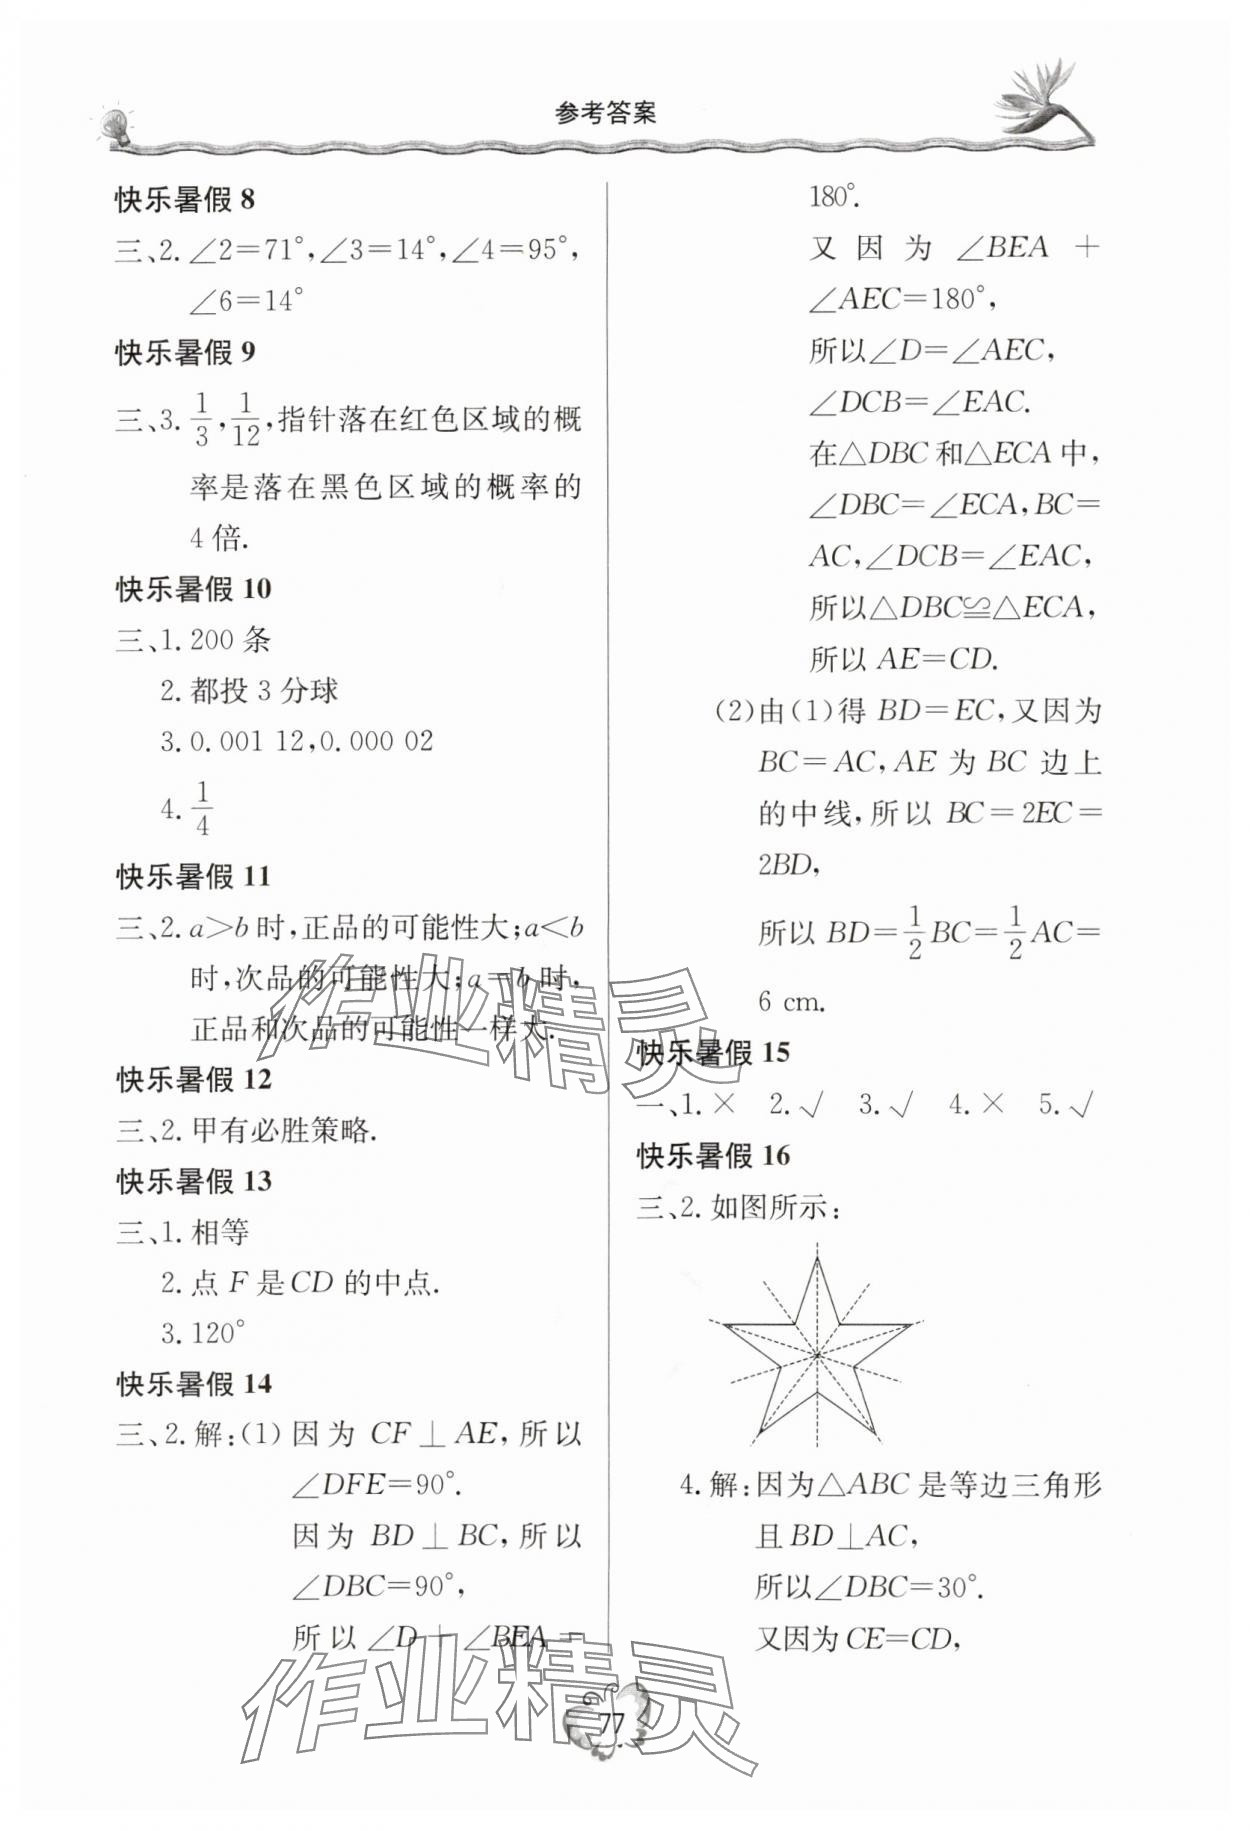 参考答案
快乐暑假 8
三、2. ∠2=71°,∠3=14°,∠4=95°,
∠6=14°
快乐暑假 9
三、3. 1/3,1/12,指针落在红色区域的概
率是落在黑色区域的概率的
4 倍.
快乐暑假 10
三、1. 200 条
2. 都投 3 分球
3. 0.001 12,0.000 02
4. 1/4
快乐暑假 11
三、2. a>b 时,正品的可能性大;a<b
时,次品的可能性大;a=b 时,
正品和次品的可能性一样大.
快乐暑假 12
三、2. 甲有必胜策略.
快乐暑假 13
三、1. 相等
2. 点 F 是 CD 的中点.
3. 120°
快乐暑假 14
三、2. 解:(1) 因为 CF⊥AE,所以
∠DFE=90°.
因为 BD⊥BC,所以
∠DBC=90°,
所以∠D+∠BEA=
180°.
又因为∠BEA+
∠AEC=180°,
所以∠D=∠AEC,
∠DCB=∠EAC.
在△DBC 和△ECA 中,
∠DBC=∠ECA,BC=
AC,∠DCB=∠EAC,
所以△DBC≌△ECA,
所以 AE=CD.
(2)由(1)得 BD=EC,又因为
BC=AC,AE 为 BC 边上
的中线,所以 BC=2EC=
2BD,
所以 BD=1/2BC=1/2AC=
6 cm.
快乐暑假 15
一、1. × 2. √ 3. √ 4. × 5. √
快乐暑假 16
三、2. 如图所示:
4. 解:因为△ABC 是等边三角形
且 BD⊥AC,
所以∠DBC=30°.
又因为 CE=CD,
77
作业精灵
作业精灵